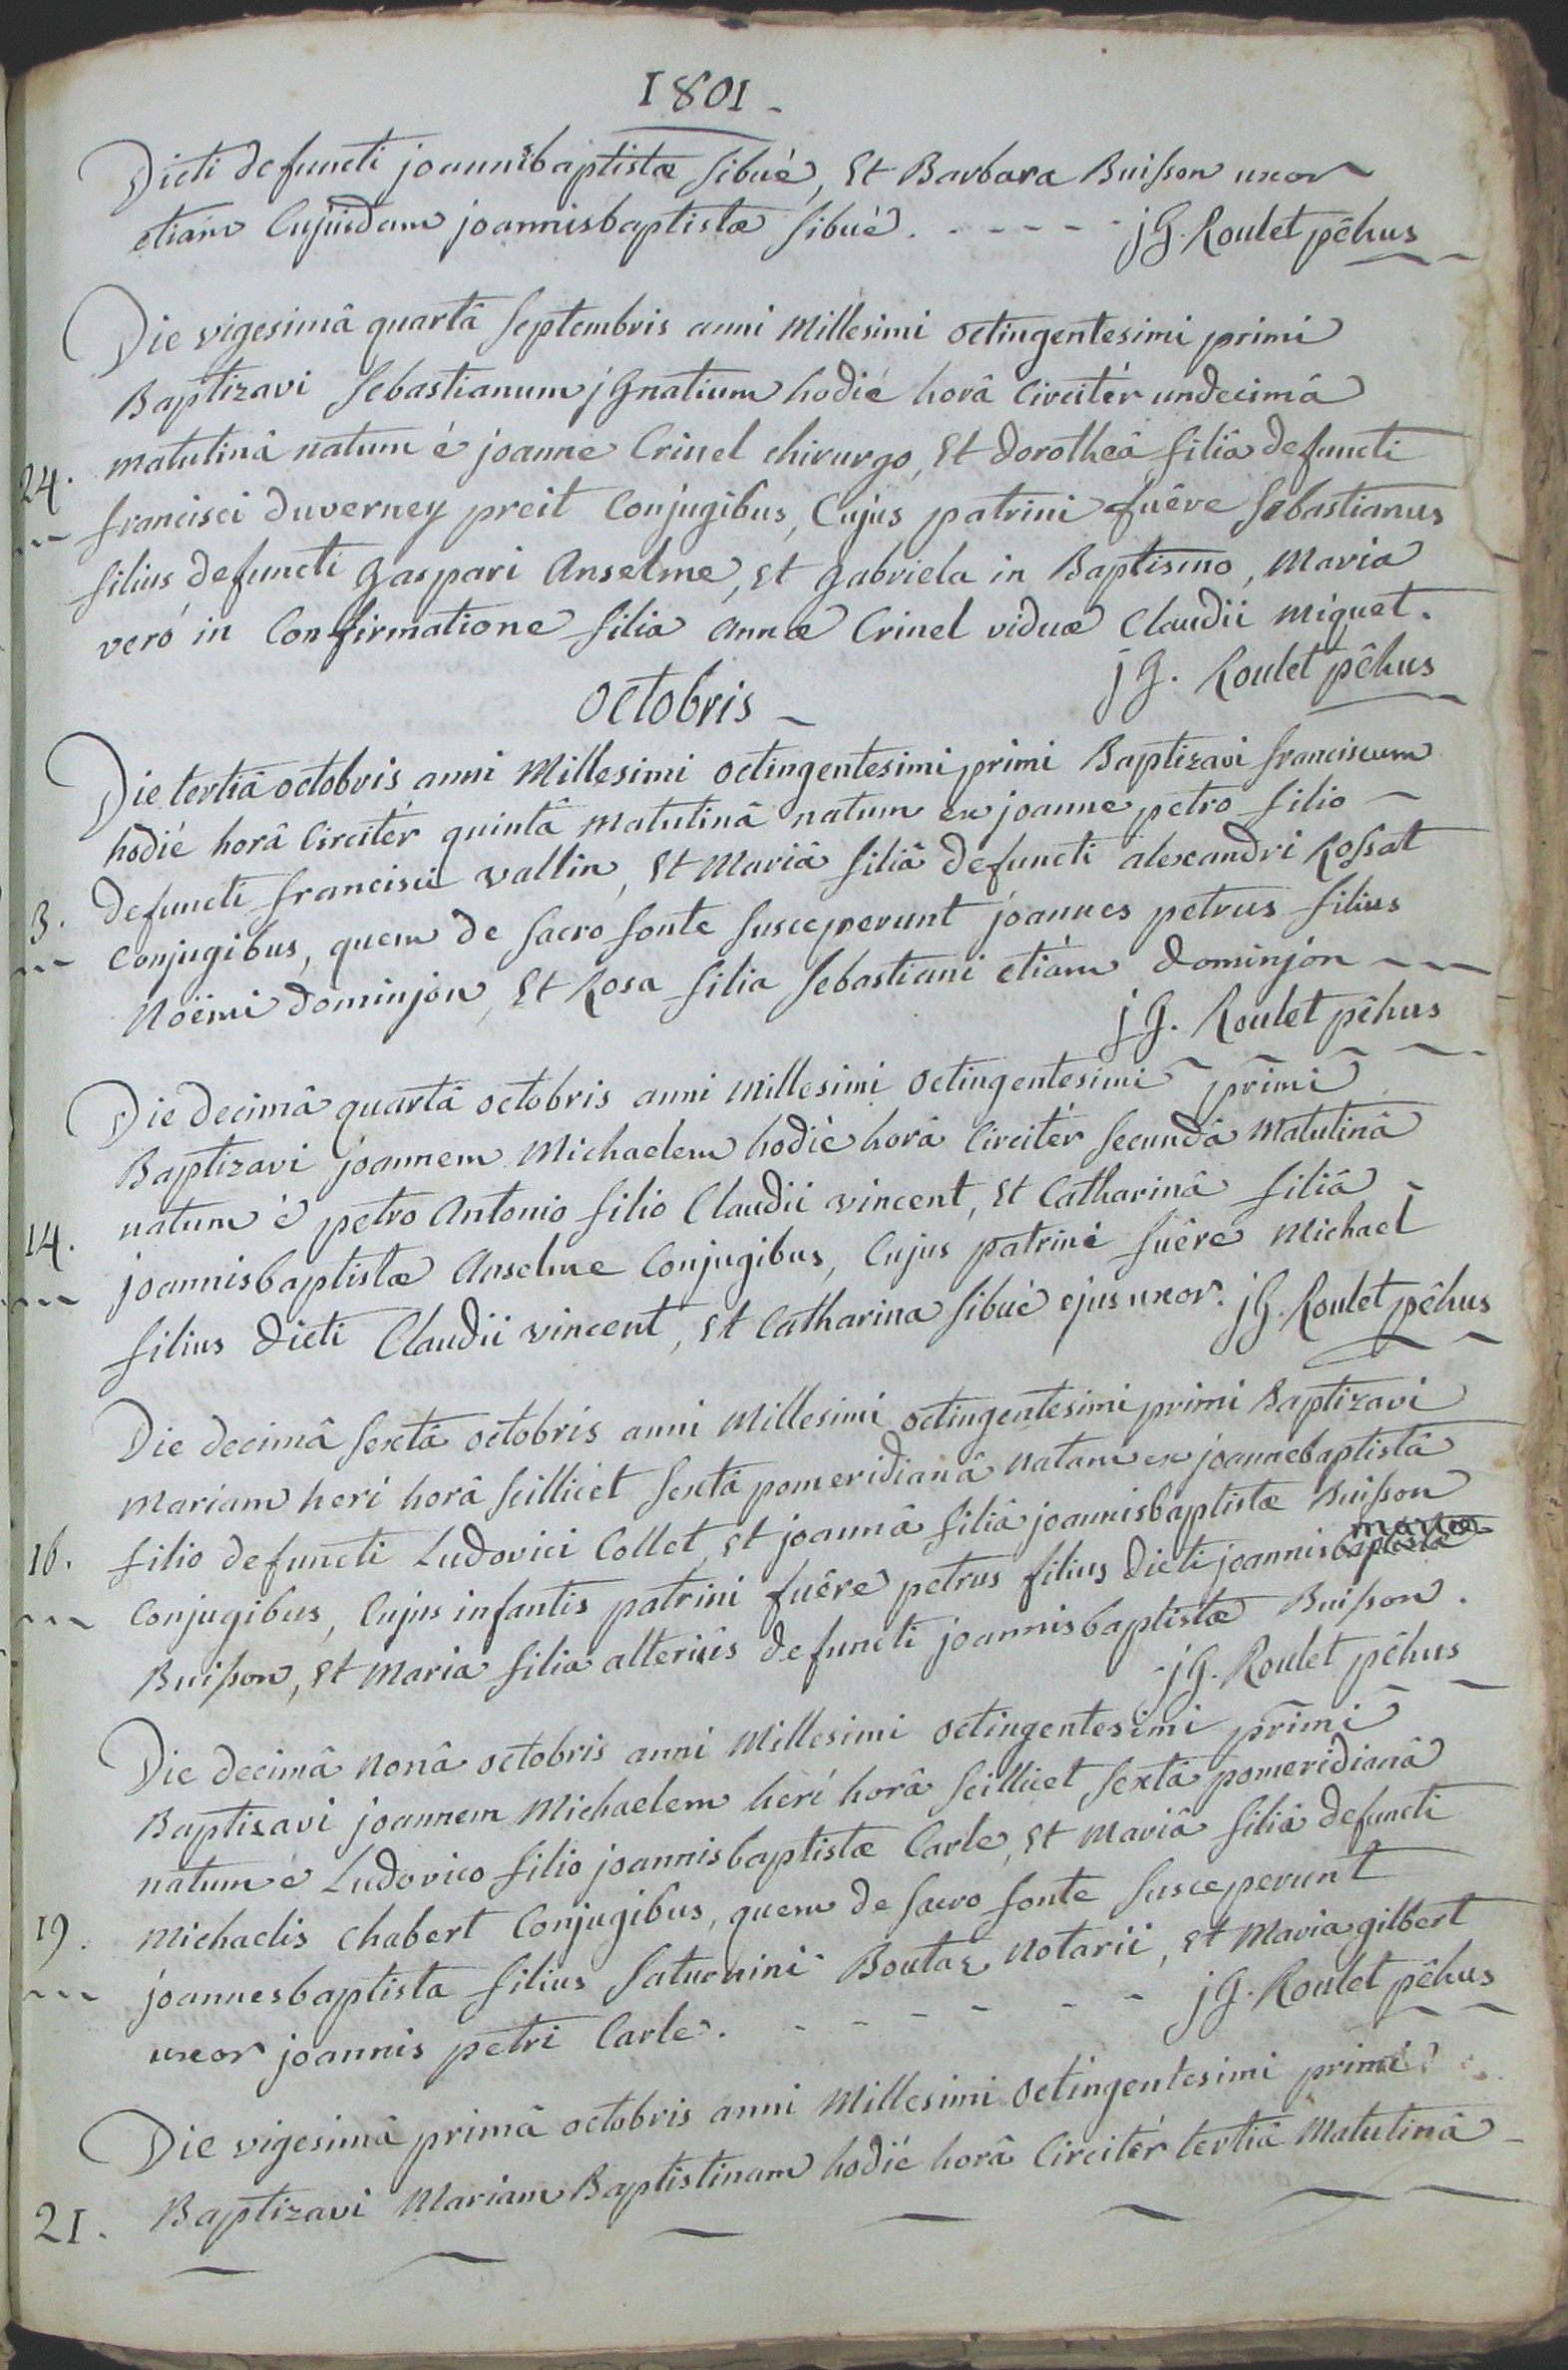 1801 -
Dicti defuncti joannisbaptistæ sibué, Et Barbara Buisson uxor
etiam Cujusdam joannisbaptistæ sibué. - - - - - jG. Roulet pêhus
Die vigesimâ quartâ septembris anni Millesimi octingentesimi primi
Baptizavi sebastianum jGnatium hodié horâ Circitér undecimâ
24. matutinâ natum é joanne Crinel chirurgo, Et dorotheâ filiâ defuncti
francisci duverney preit Conjugibus, Cujus patrini fuêre sebastianus
filius defuncti gaspari Anselme, Et gabriela in Baptismo, Maria
veró in Confirmatione filia Annæ Crinel viduæ Claudii miguet.
jG. Roulet pêhus
octobris -
Die tertiâ octobris anni Millesimi octingentesimi primi Baptizavi franciscum
hodié horâ Circitér quintâ matutinâ natum ex joanne petro filio -
3. defuncti francisci vallin, Et Mariâ filiâ defuncti alexandri Rossat
Conjugibus, quem de sacro fonte susceperunt joannes petrus filius
Nöemi dominjon, Et Rosa filia sebastiani etiám dominjón - - -
jG. Roulet pêhus
Die decimâ quartâ octobris anni Millesimi octingentesimi primi
Baptizavi joannem Michaelem hodié horâ Circitér secundâ Matutinâ
natum é petro Antonio filio Claudii vincent, Et Catharinâ filiâ -
14. joannisbaptistæ Anselme Conjugibus, Cujus patrini fuêre Michael
filius dicti Claudii vincent, Et Catharina sibué ejus uxor. jG. Roulet pêhus
Die decimâ sextâ octobris anni Millesimi octingentesimi primi Baptizavi
Mariam heri horâ scillicét sextâ pomeridianâ natam ex joannebaptistâ
16. filio defuncti Ludovici Collet, Et joannâ filiâ joannisbaptistæ Buisson
mariæ
Conjugibus, Cujus infantis patrini fuêre petrus filius dicti joannisbaptistæ
Buisson, Et Maria filia alteriùs defuncti joannisbaptistæ Buisson.
- jG. Roulet pêhus
Die decimâ Nonâ octobris anni Millesimi octingentesimi primi
Baptisavi joannem Michaelem heri horâ scillicet sextâ pomeridianâ
natum é Ludovico filio joannisbaptistæ Carle, Et Mariâ filiâ defuncti
19. Michaelis Chabert Conjugibus, quem de sacro fonte susceperunt
joannesbaptista filius saturnini Boutaz Notarii, Et Maria gilbert
uxor joannis petri Carle. - - - - - - jG. Roulet pêhus
Die vigesimâ primâ octobris anni Millesimi octingentesimi primi
21. Baptizavi Mariam Baptistinam hodié horâ Circitér tertiâ Matutinâ -